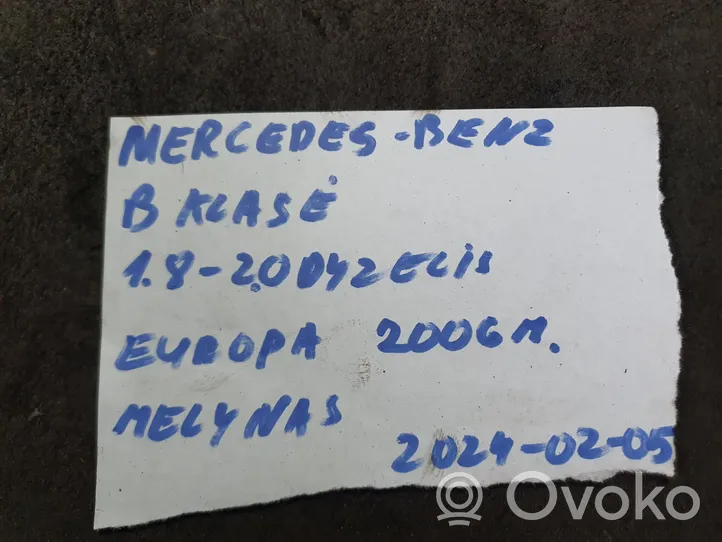 MERCEDES-BENZ
B KLASĖ
1.8-2.0 DYZELIS
EUROPA 2006 M.
MELYNAS
2024-02-05
Ovoko